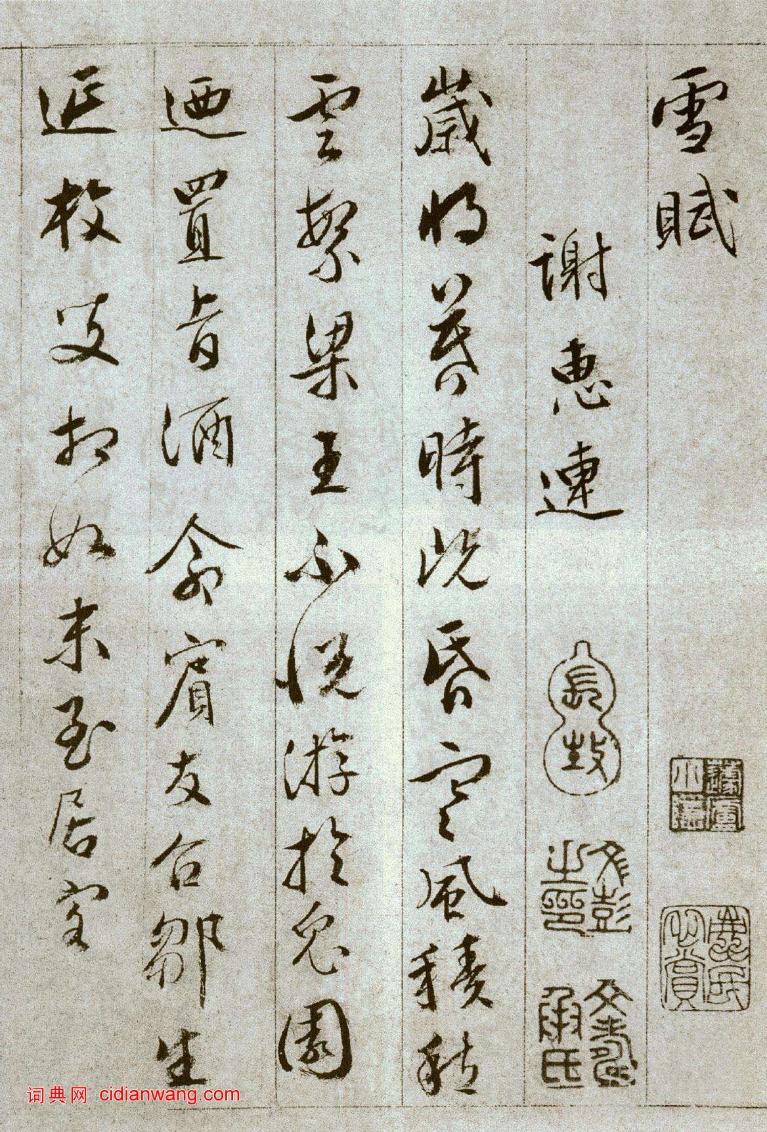 雪賦
謝惠連
文彭之印
文壽承氏
歲將暮時既昏寒風積愁
雲繁梁王不悅游於兔園
迺置旨酒命賓友召鄒生
延枚叟相如末至居客
词典网 cidianwang.com